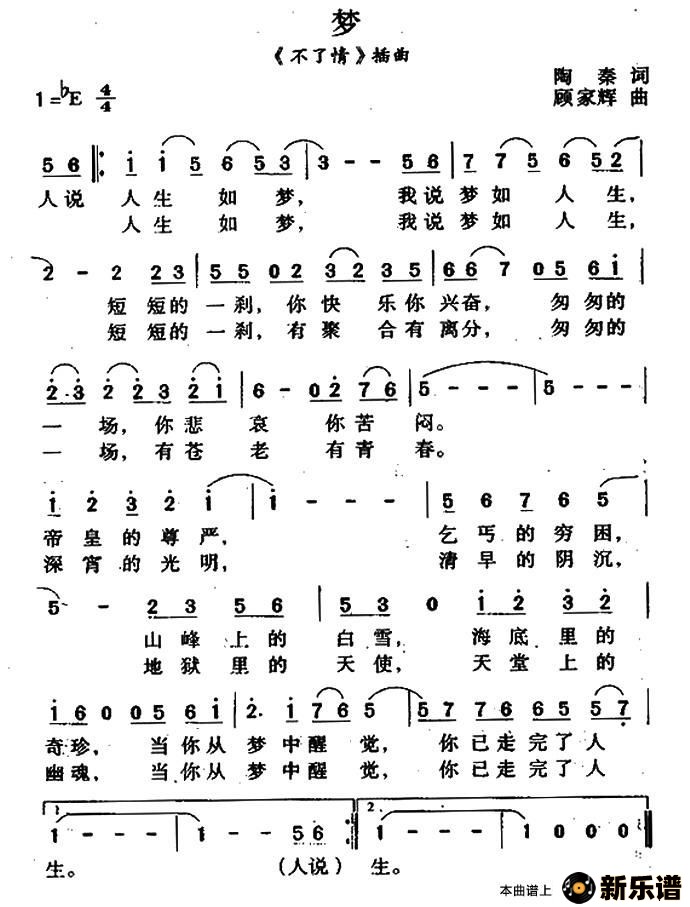 梦
《不了情》插曲
陶 秦 词
1=ᵇE 4/4
顾家辉 曲
5 6 1 1 5 6 5 3 3 - - 5 6 7 7 5 6 5 2
人说 人生 如 梦, 我说 梦如 人 生,
人生 如 梦, 我说 梦如 人 生,
2 - 2 2 3 5 5 0 2 3 2 3 5 6 6 7 0 5 6 1
短 短的 一刹, 你 快 乐你 兴奋, 匆 匆的
短 短的 一刹, 有 聚 合有 离分, 匆 匆的
2 · 3 2 2 3 2 1 6 - 0 2 7 6 5 - - - 5 - - -
一场, 你悲 哀 你苦 闷。
一场, 有苍 老 有青 春。
1 2 3 2 1 1 - - - 5 6 7 6 5
帝皇的尊严, 乞丐的穷困,
深宵的光明, 清早的阴沉,
5 - 2 3 5 6 5 3 0 1 2 3 2
山峰上的 白雪, 海底里的
地狱里的 天使, 天堂上的
1 6 0 0 5 6 1 2 · 1 7 6 5 5 7 6 7 6 6 5 5 7
奇珍, 当你从 梦中醒 觉, 你已走完了人
幽魂, 当你从 梦中醒 觉, 你已走完了人
1. 2.
1 - - - 1 - - 5 6 1 - - - 1 0 0 0
生。 (人说) 生。
本曲谱上 新乐谱